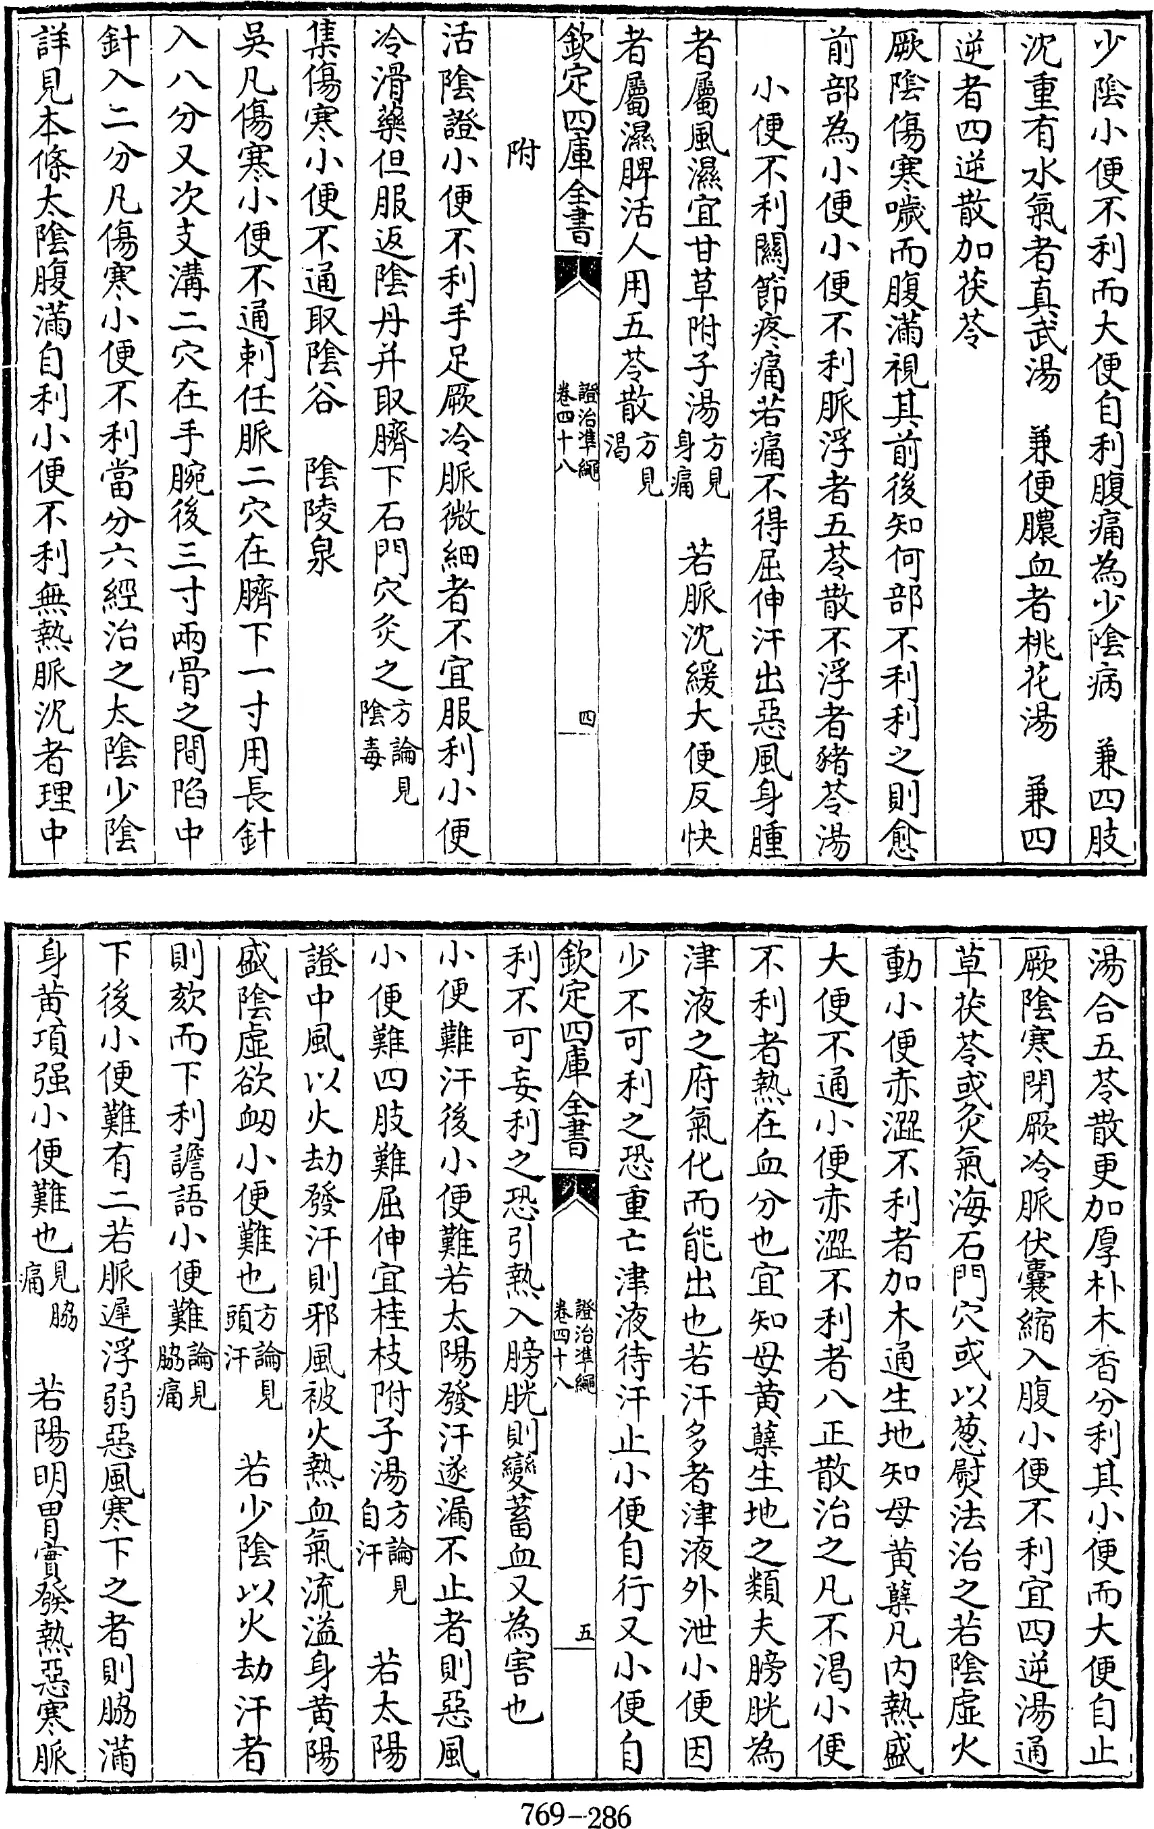 少陰小便不利而大便自利腹痛為少陰病　兼四肢
沈重有水氣者真武湯　兼便膿血者桃花湯　兼四
逆者四逆散加茯苓
厥陰傷寒噦而腹滿視其前後知何部不利利之則愈
前部為小便小便不利脈浮者五苓散不浮者豬苓湯
小便不利關節疼痛若痛不得屈伸汗出惡風身腫
者屬風濕宜甘草附子湯方見身痛　若脈沈緩大便反快
者屬濕脾活人用五苓散方見渴
欽定四庫全書　證治準繩卷四十八　四
附
活陰證小便不利手足厥冷脈微細者不宜服利小便
冷滑藥但服返陰丹并取臍下石門穴灸之方論見陰毒
集傷寒小便不通取陰谷　陰陵泉
吳凡傷寒小便不通刺任脈二穴在臍下一寸用長針
入八分又次支溝二穴在手腕後三寸兩骨之間陷中
針入二分凡傷寒小便不利當分六經治之太陰少陰
詳見本條太陰腹滿自利小便不利無熱脈沉者理中
湯合五苓散更加厚朴木香分利其小便而大便自止
厥陰寒閉厥冷脈伏囊縮入腹小便不利宜四逆湯通
草茯苓或灸氣海石門穴或以葱熨法治之若陰虛火
動小便赤澀不利者加木通生地知母黄蘗凡内熱盛
大便不通小便赤澀不利者八正散治之凡不渴小便
不利者熱在血分也宜知母黄蘗生地之類夫膀胱為
津液之府氣化而能出也若汗多者津液外泄小便因
少不可利之恐重亡津液待汗止小便自行又小便自
欽定四庫全書　證治準繩卷四十八　五
利不可妄利之恐引熱入膀胱則變蓄血又為害也
小便難汗後小便難若太陽發汗遂漏不止者則惡風
小便難四肢難屈伸宜桂枝附子湯方論見自汗　若太陽
證中風以火劫發汗則邪風被火熱血氣流溢身黄陽
盛陰虛欲衂小便難也方論見頭汗　若少陰以火劫汗者
則欬而下利譫語小便難論見脇痛
下後小便難有二若脈遲浮弱惡風寒下之者則脇滿
身黄項强小便難也見脇痛　若陽明胃實發熱惡寒脈
769-286